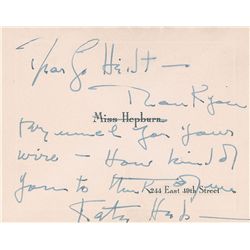 Dear Jo Heidt —
Thank you
Miss Hepburn
very much for your
wire — How kind of
you to think of me
244 East 49th Street
Kate Hep—